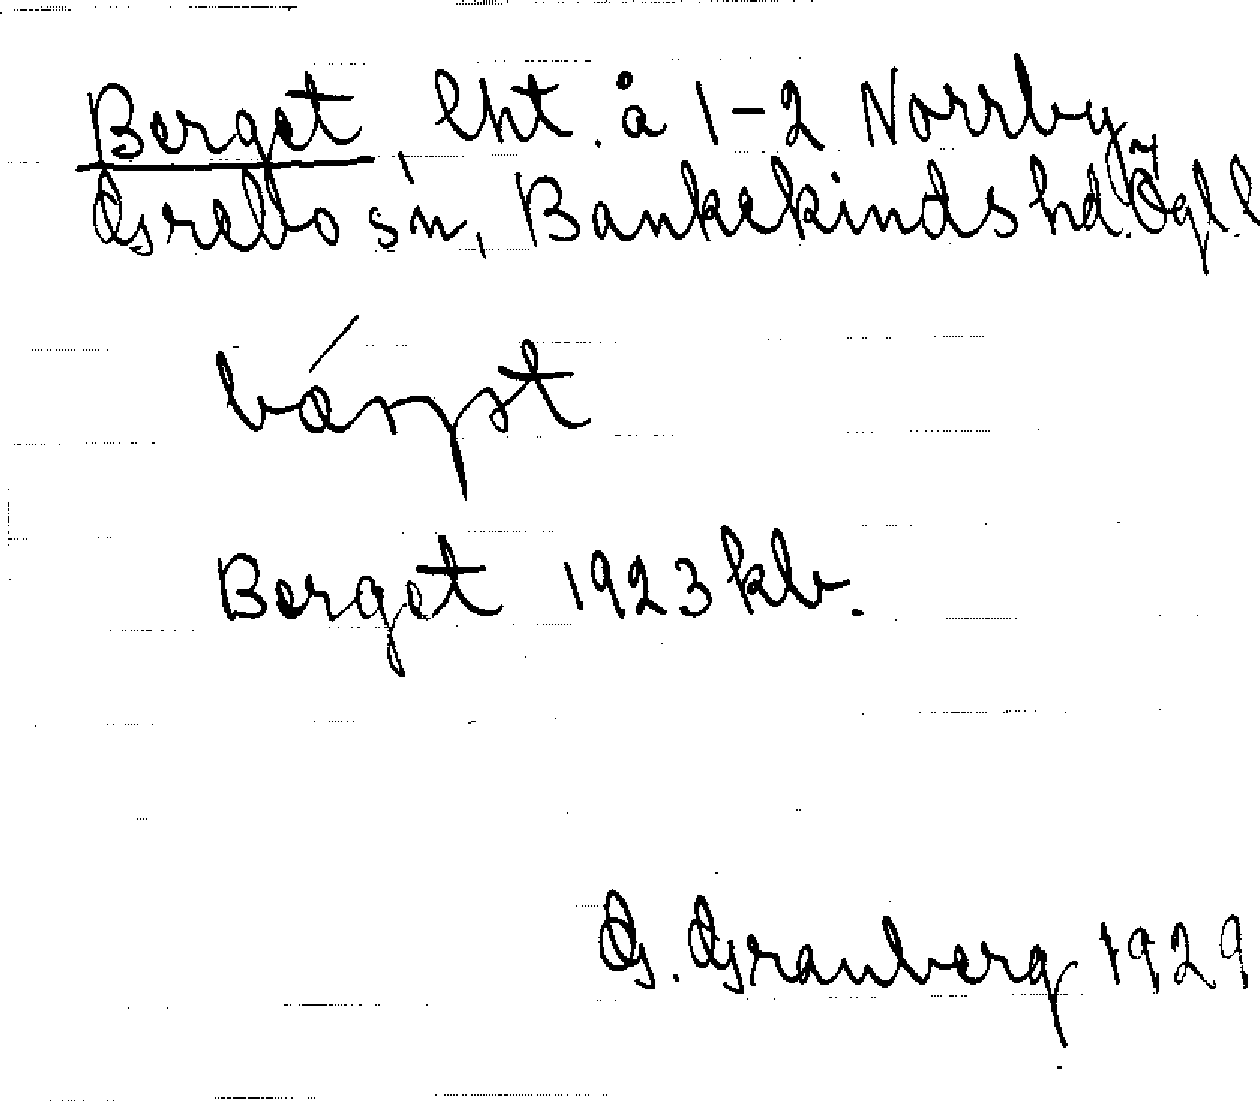 Berget, lht. å 1-2 Norrby,
Grebo sn, Bankekinds hd. Ögl.
Berget 1923 kb.
G. Granberg 1929